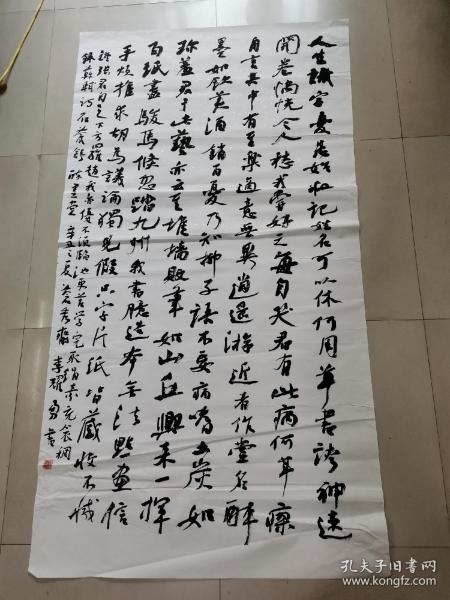 人生識字憂患始粗記姓名可以休何用草書誇神速
開卷惝怳令人愁我嘗好之每自笑君有此病何年瘳
自言其中有至樂適意無異逍遥游近者作堂名醉
墨如飲美酒銷百憂乃知柳子語不妄病嗜土炭如
珍羞君于此藝亦云至堆墙敗筆如山丘興来一揮
百紙盡駿馬倏忽踏九州我書臆造本無法點畫信
手煩推求胡為議論獨見假只字片紙皆藏收不減
鍾張君自足下方羅趙我亦優不須臨池更苦學完取絹素充衾裯
録蘇軾詩石蒼舒醉墨堂辛丑之夏 李耀 書
孔夫子旧书网
www.kongfz.com